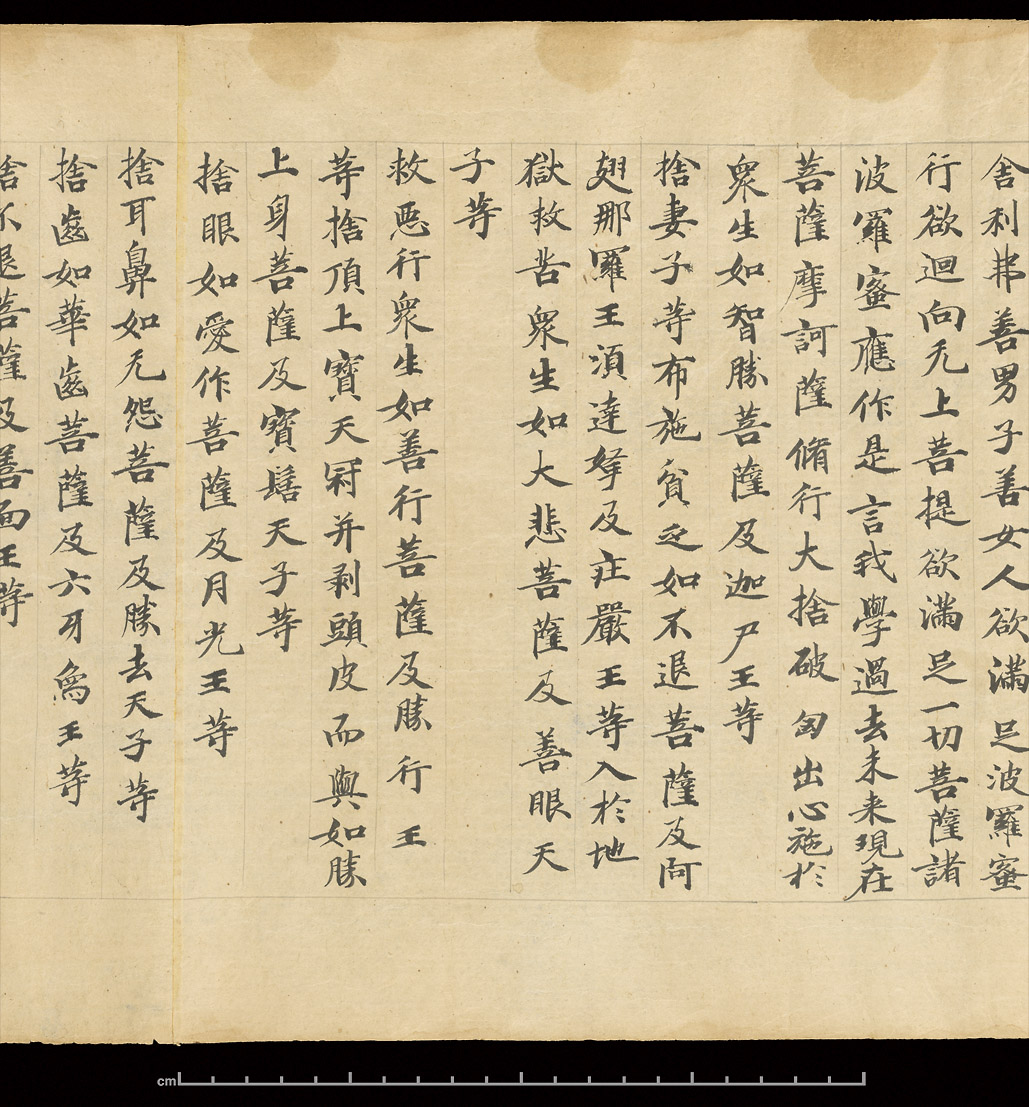 舍利弗善男子善女人欲滿足波羅蜜
行欲迴向无上菩提欲滿足一切菩薩諸
波羅蜜應作是言我學過去未来現在
菩薩摩訶薩脩行大捨破匈出心施於
衆生如智勝菩薩及迦尸王等
捨妻子等布施貧乏如不退菩薩及阿
翅那羅王湏達拏及庄嚴王等入於地
獄救苦衆生如大悲菩薩及善眼天
子等
救惡行衆生如善行菩薩及勝行王
等捨頂上寶天冠并剥頭皮而與如勝
上身菩薩及寶髻天子等
捨眼如愛作菩薩及月光王等
捨耳鼻如无怨菩薩及勝去天子等
捨齒如華齒菩薩及六牙爲王等
捨不退菩薩及善面王等
cm